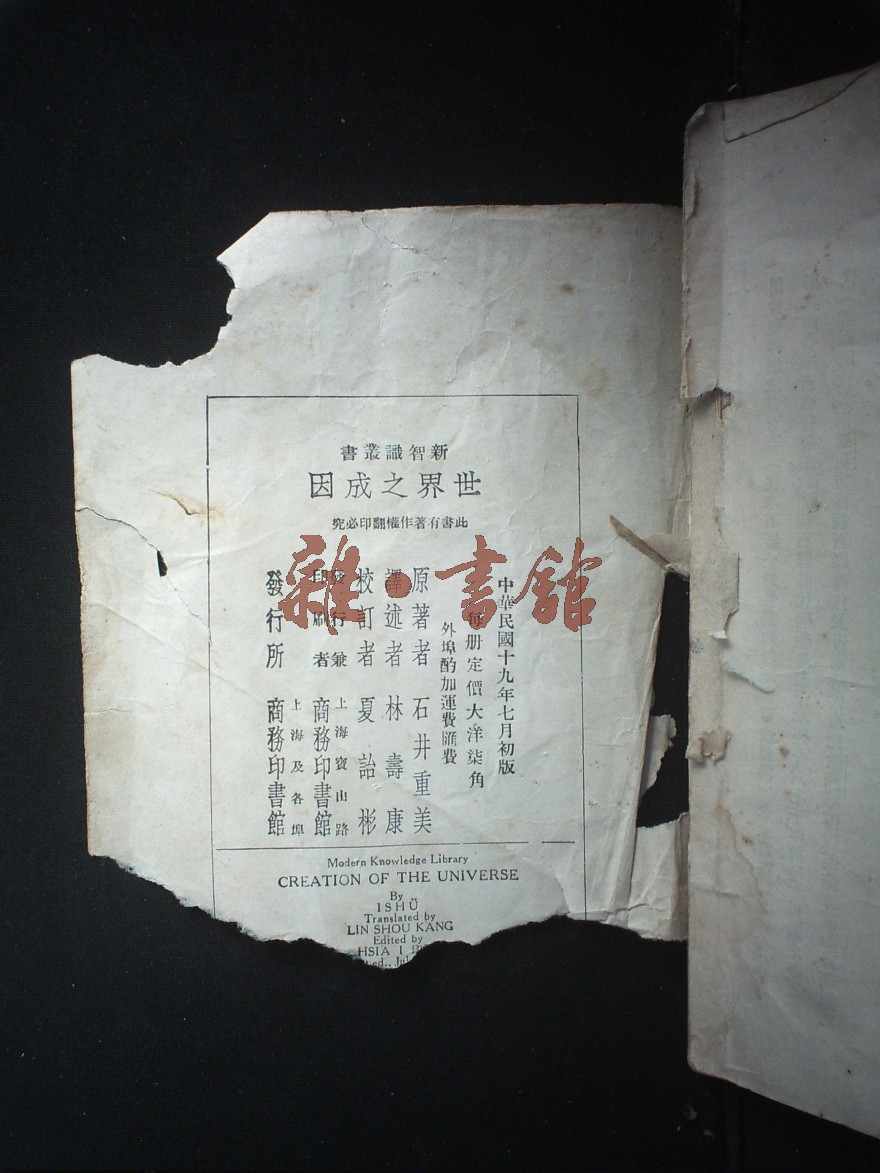 新智識叢書
世界之成因
此書有著作權翻印必究
中華民國十九年七月初版
每册定價大洋柒角
外埠酌加運費匯費
原著者 石井重美
譯述者 林壽康
校訂者 夏詒彬
發行兼印刷者 上海寶山路 商務印書館
發行所 上海及各埠 商務印書館
雜·書館
Modern Knowledge Library
CREATION OF THE UNIVERSE
By
ISHÜ
Translated by
LIN SHOU KANG
Edited by
HSIA I